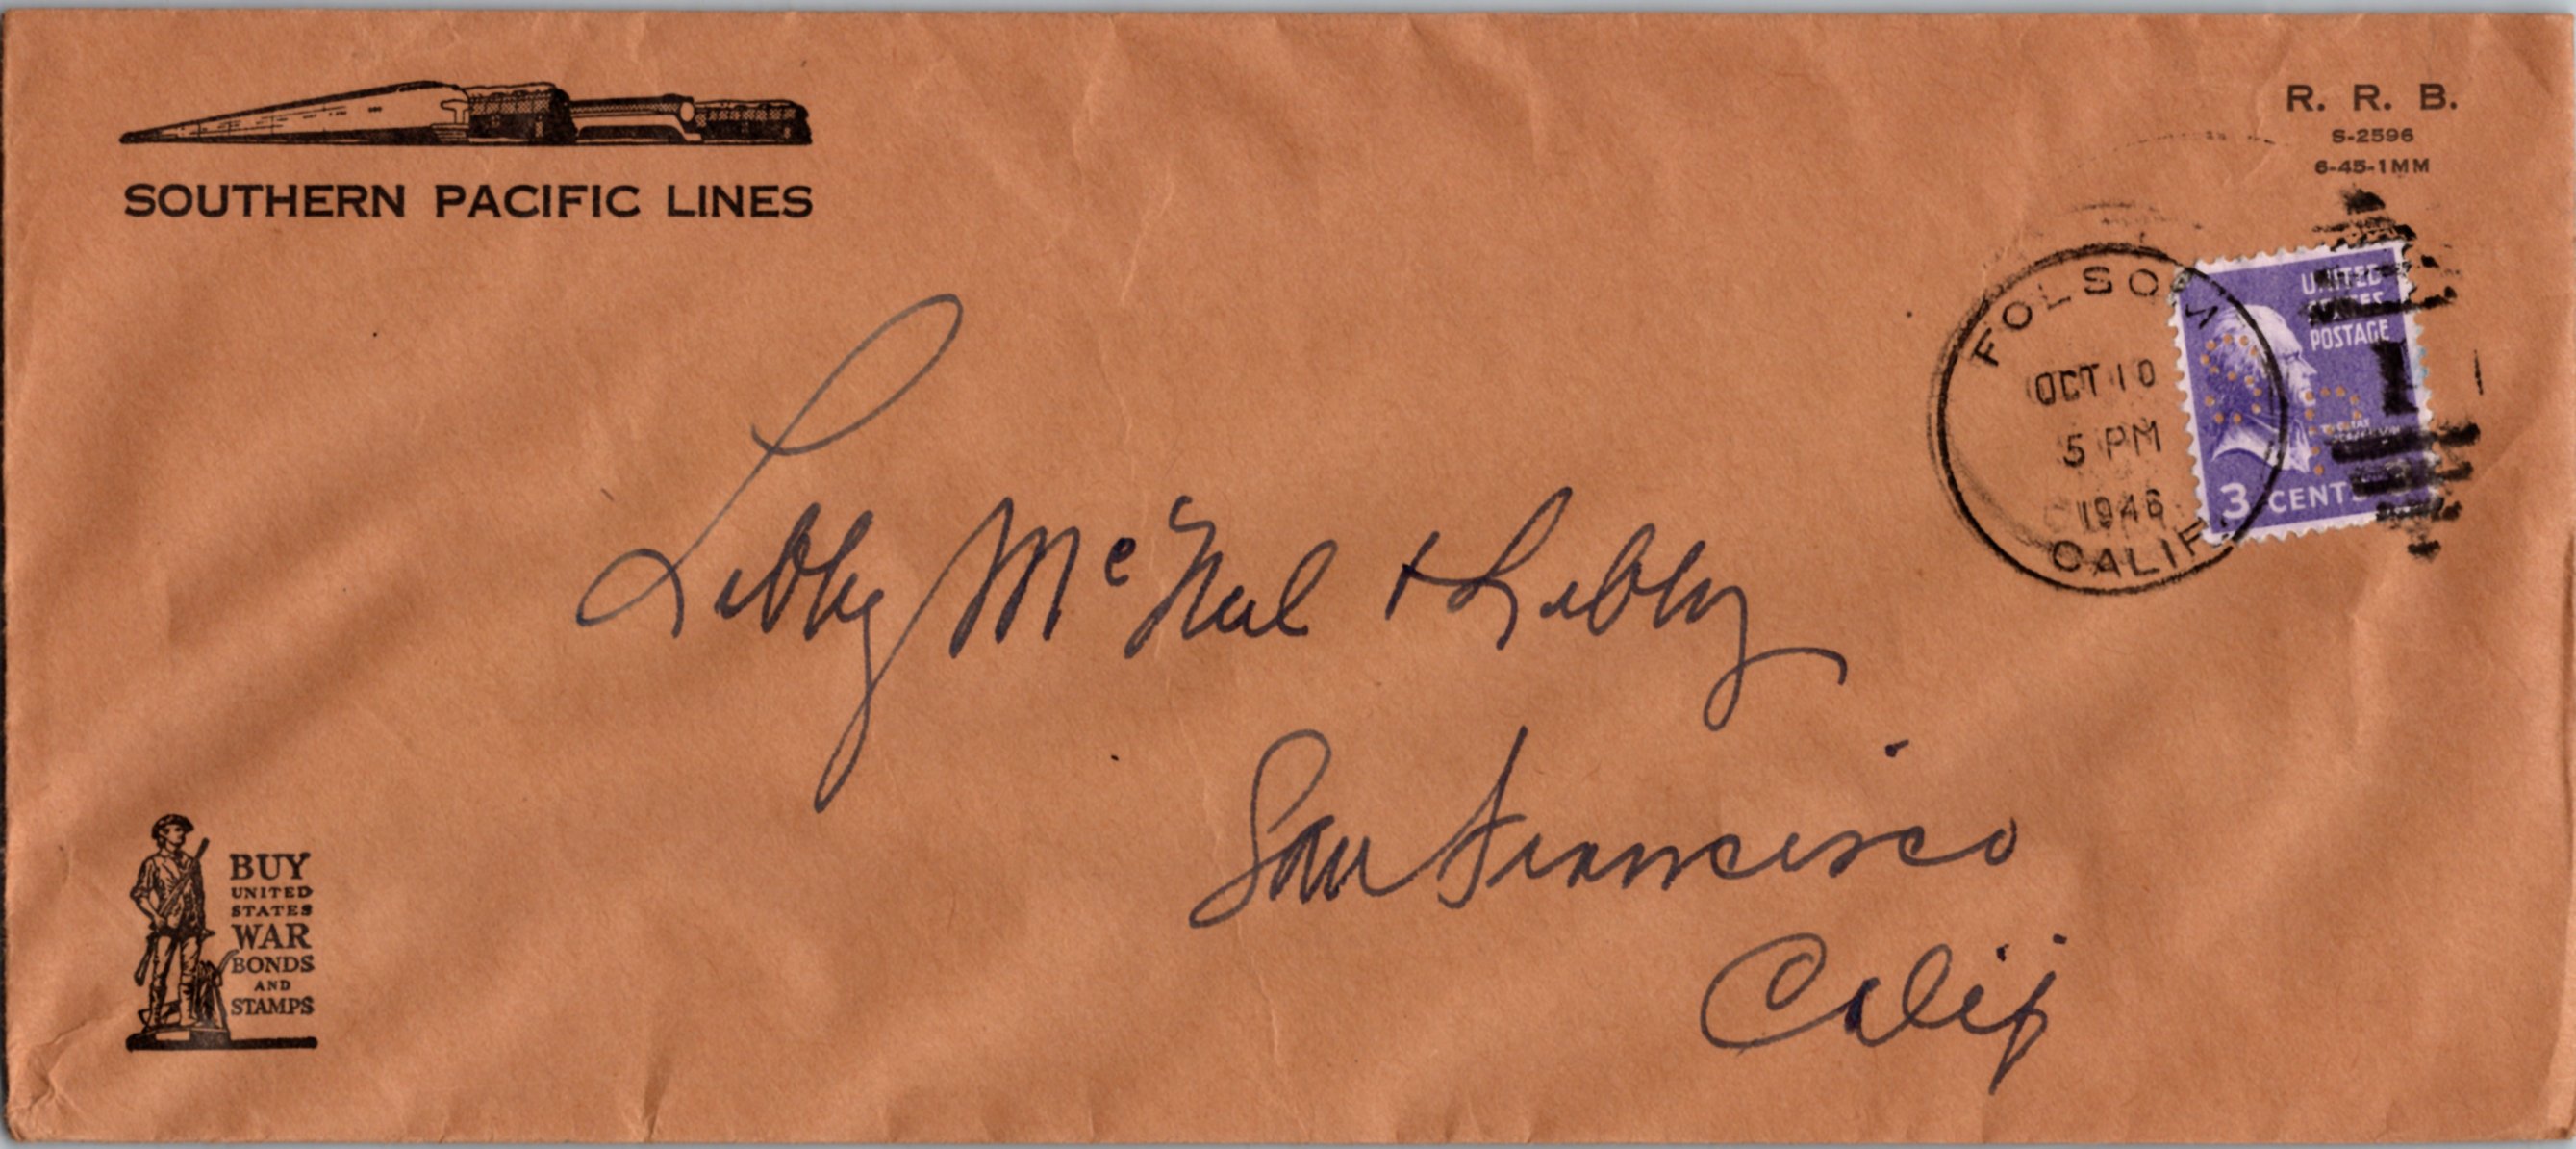 SOUTHERN PACIFIC LINES
R. R. B.
S-2596
6-45-1MM
FOLSOM
OCT 10
5 PM
1946
CALIF.
UNITED
STATES
POSTAGE
3 CENTS
Libby McNeil + Libby
San Francisco
Calif
BUY
UNITED
STATES
WAR
BONDS
AND
STAMPS